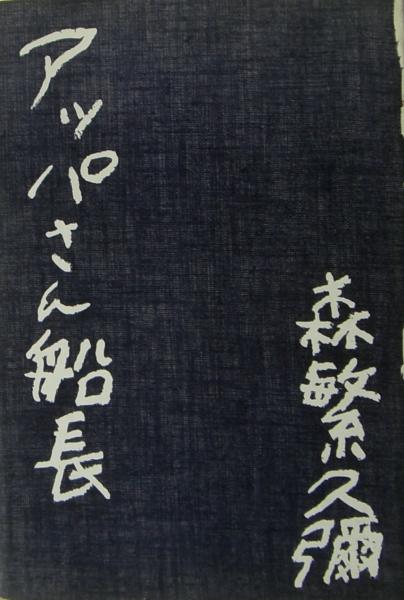 アッパさん船長
森繁久彌